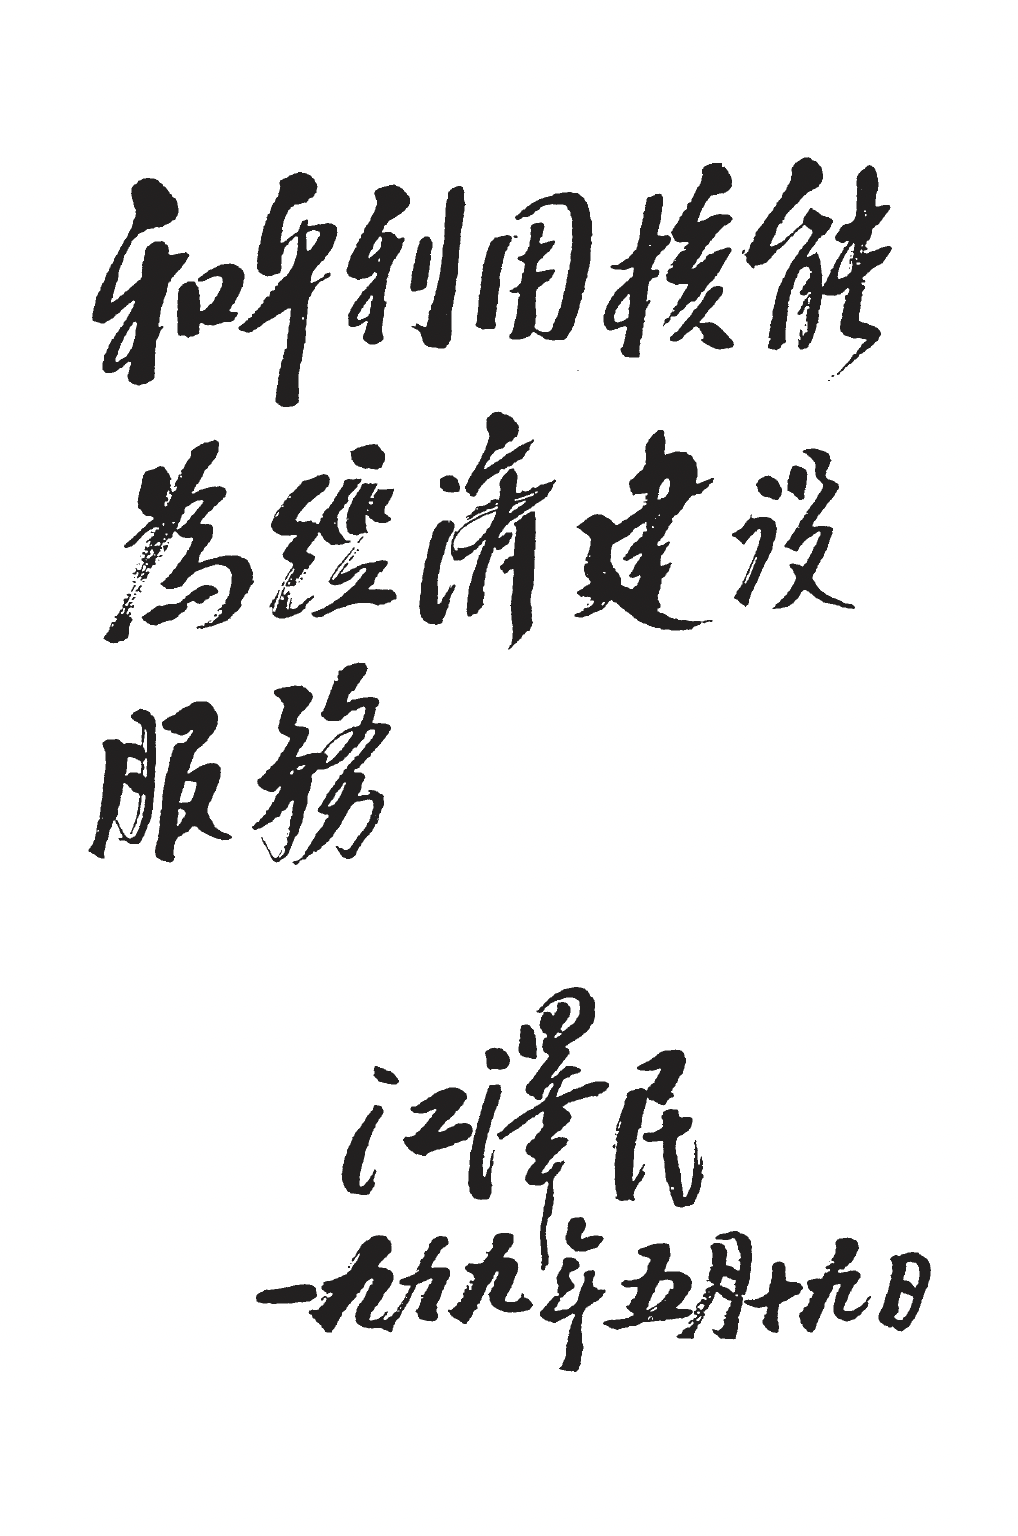 和平利用核能
為經濟建设
服務
江澤民
一九九九年五月十九日